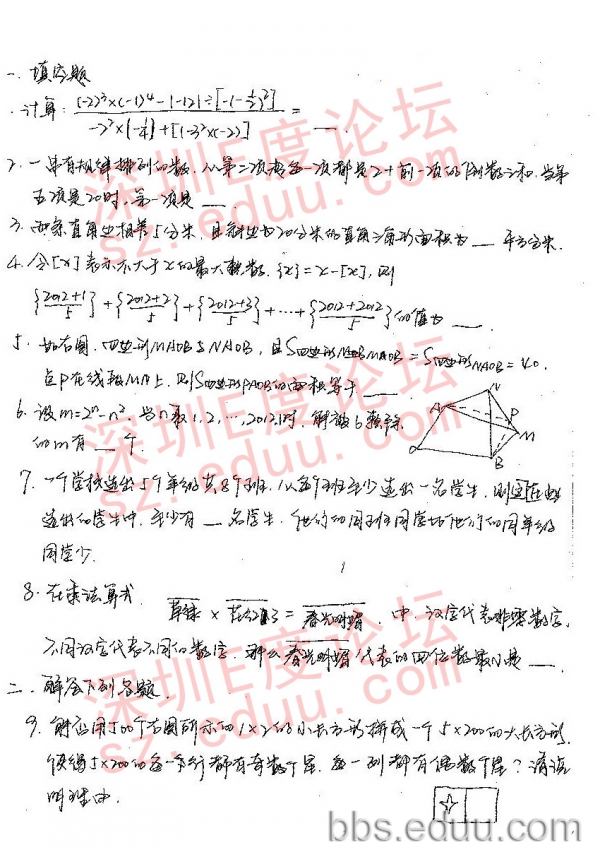 一、填空题
1. 计算: \frac{(-2)^3×(-1)^4-|-12|÷[-(-\frac{1}{2})^2]}{-2^2×(-\frac{1}{4})+[1-3^2×(-2)]} = ___.
2. 一串有规律排列的数, 从第二项起每一项都是2+前一项的倒数之和, 当第
五项是20时, 第一项是 ___.
3. 两条直角边相差5分米, 且斜边为20分米的直角三角形面积为 ___ 平方分米.
4. 令[x]表示不大于x的最大整数, {x}=x-[x], 则
{\frac{2012+1}{5}}+{\frac{2012+2}{5}}+{\frac{2012+3}{5}}+⋯+{\frac{2012+2012}{5}} 的值为 ___.
5. 如右图, 四边形MAOB与NAOB, 且S四边形MAOB=S四边形NAOB=40.
点P在线段MN上, 则S四边形PAOB的面积等于 ___
A N P M B O
6. 设m=2^n-n^2, 当n取1,2,⋯,2012时, 能被6整除
的m有 ___ 个.
7. 一个学校选出5个年级共8个班, 从每个班至少选出一名学生, 则这些
选出的学生中, 至少有 ___ 名学生, 他们的同班同学比他们的同年级
同学少.
8. 在乘法算式 草绿 × 花红了 = 春光明媚 中, 汉字代表非零数字,
不同汉字代表不同的数字, 那么春光明媚代表的四位数最小是 ___.
二、解答下列各题
9. 能否用500个右图所示的1×2的小长方形拼成一个5×200的大长方形,
使得5×200的每一行都有奇数个星, 每一列都有偶数个星? 请说
明理由.
深圳E度论坛
sz.eduu.com
深圳E度论坛
sz.eduu.com
深圳E度论坛
sz.eduu.com
bbs.eduu.com